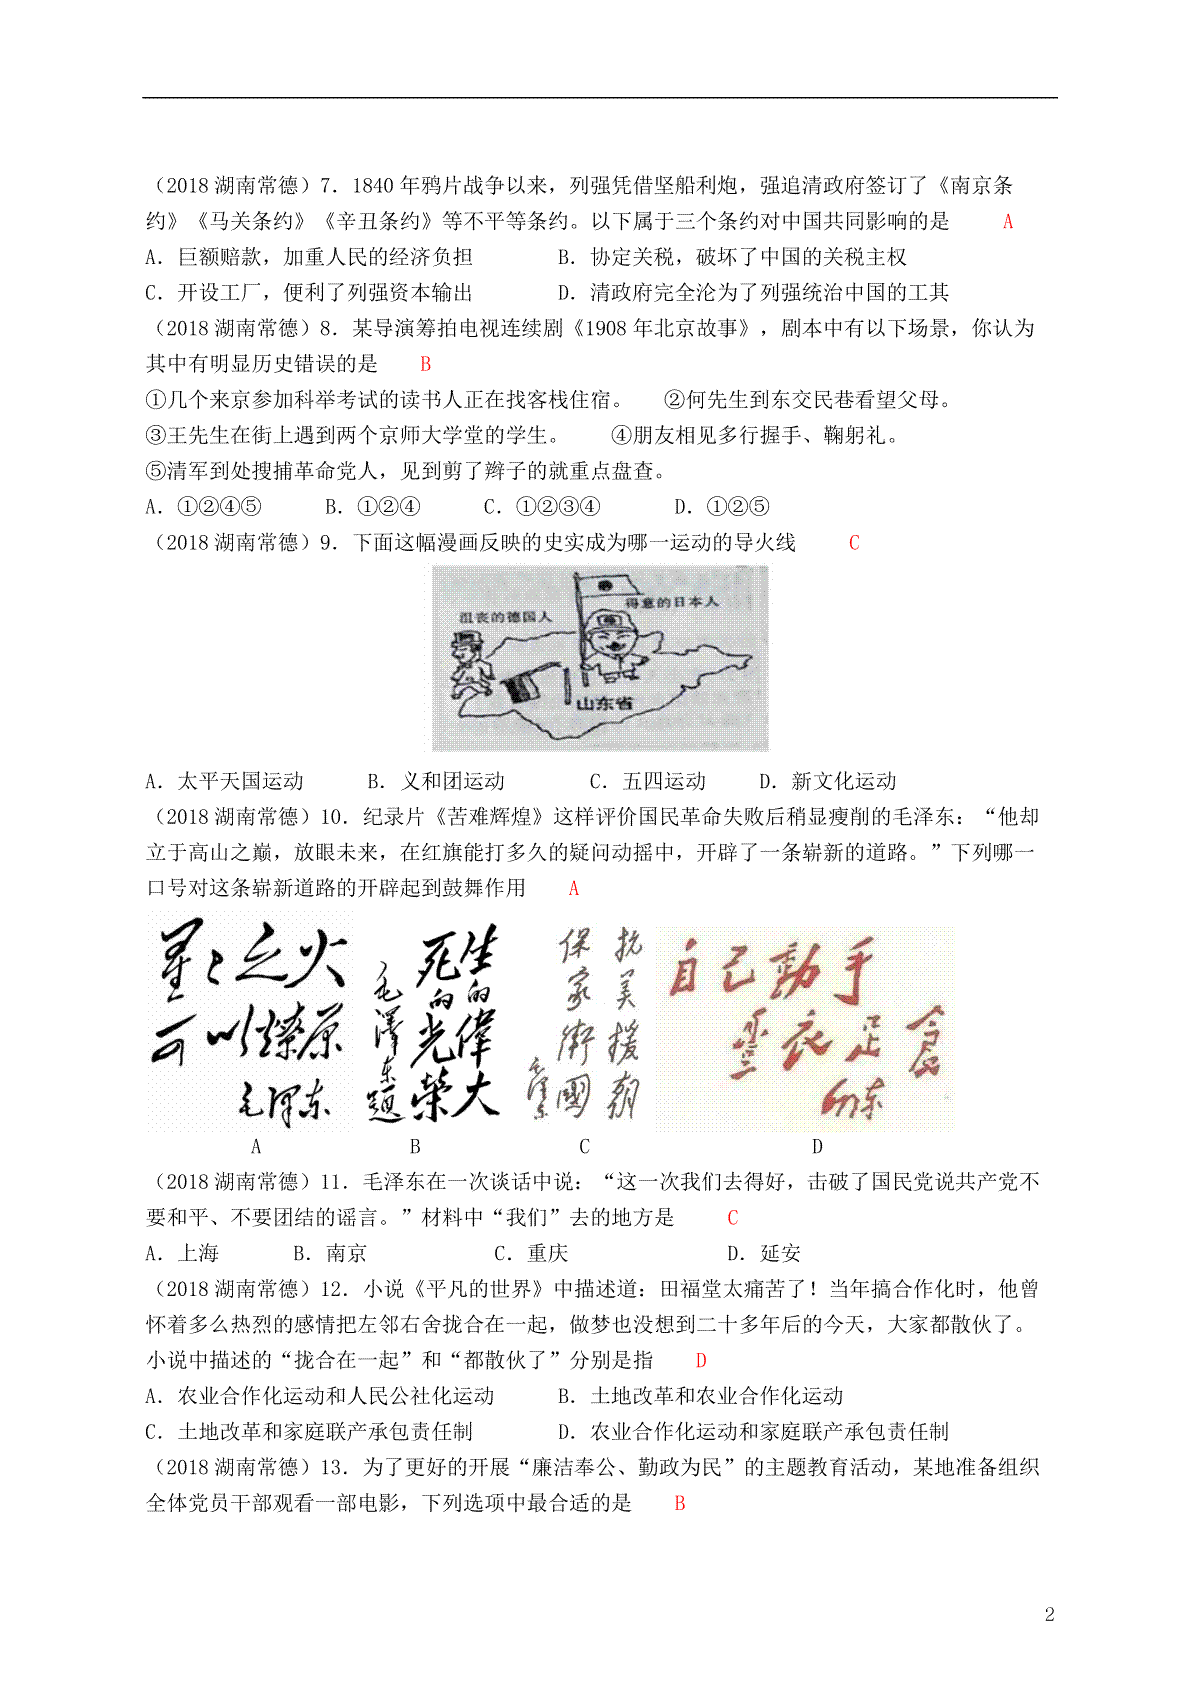 （2018 湖南常德）7．1840 年鸦片战争以来，列强凭借坚船利炮，强追清政府签订了《南京条
约》《马关条约》《辛丑条约》等不平等条约。以下属于三个条约对中国共同影响的是 A
A．巨额赔款，加重人民的经济负担 B．协定关税，破坏了中国的关税主权
C．开设工厂，便利了列强资本输出 D．清政府完全沦为了列强统治中国的工其
（2018 湖南常德）8．某导演筹拍电视连续剧《1908 年北京故事》，剧本中有以下场景，你认为
其中有明显历史错误的是 B
①几个来京参加科举考试的读书人正在找客栈住宿。 ②何先生到东交民巷看望父母。
③王先生在街上遇到两个京师大学堂的学生。 ④朋友相见多行握手、鞠躬礼。
⑤清军到处搜捕革命党人，见到剪了辫子的就重点盘查。
A．①②④⑤ B．①②④ C．①②③④ D．①②⑤
（2018 湖南常德）9．下面这幅漫画反映的史实成为哪一运动的导火线 C
得意的日本人
沮丧的德国人
山东省
A．太平天国运动 B．义和团运动 C．五四运动 D．新文化运动
（2018 湖南常德）10．纪录片《苦难辉煌》这样评价国民革命失败后稍显瘦削的毛泽东：“他却
立于高山之巅，放眼未来，在红旗能打多久的疑问动摇中，开辟了一条崭新的道路。”下列哪一
口号对这条崭新道路的开辟起到鼓舞作用 A
星星之火
可以燎原
毛泽东
生的偉大
死的光榮
毛澤东題
抗美援朝
保家衛國
毛澤东
自己動手
豐衣足食
A B C D
（2018 湖南常德）11．毛泽东在一次谈话中说：“这一次我们去得好，击破了国民党说共产党不
要和平、不要团结的谣言。”材料中“我们”去的地方是 C
A．上海 B．南京 C．重庆 D．延安
（2018 湖南常德）12．小说《平凡的世界》中描述道：田福堂太痛苦了！当年搞合作化时，他曾
怀着多么热烈的感情把左邻右舍拢合在一起，做梦也没想到二十多年后的今天，大家都散伙了。
小说中描述的“拢合在一起”和“都散伙了”分别是指 D
A．农业合作化运动和人民公社化运动 B．土地改革和农业合作化运动
C．土地改革和家庭联产承包责任制 D．农业合作化运动和家庭联产承包责任制
（2018 湖南常德）13．为了更好的开展“廉洁奉公、勤政为民”的主题教育活动，某地准备组织
全体党员干部观看一部电影，下列选项中最合适的是 B
2